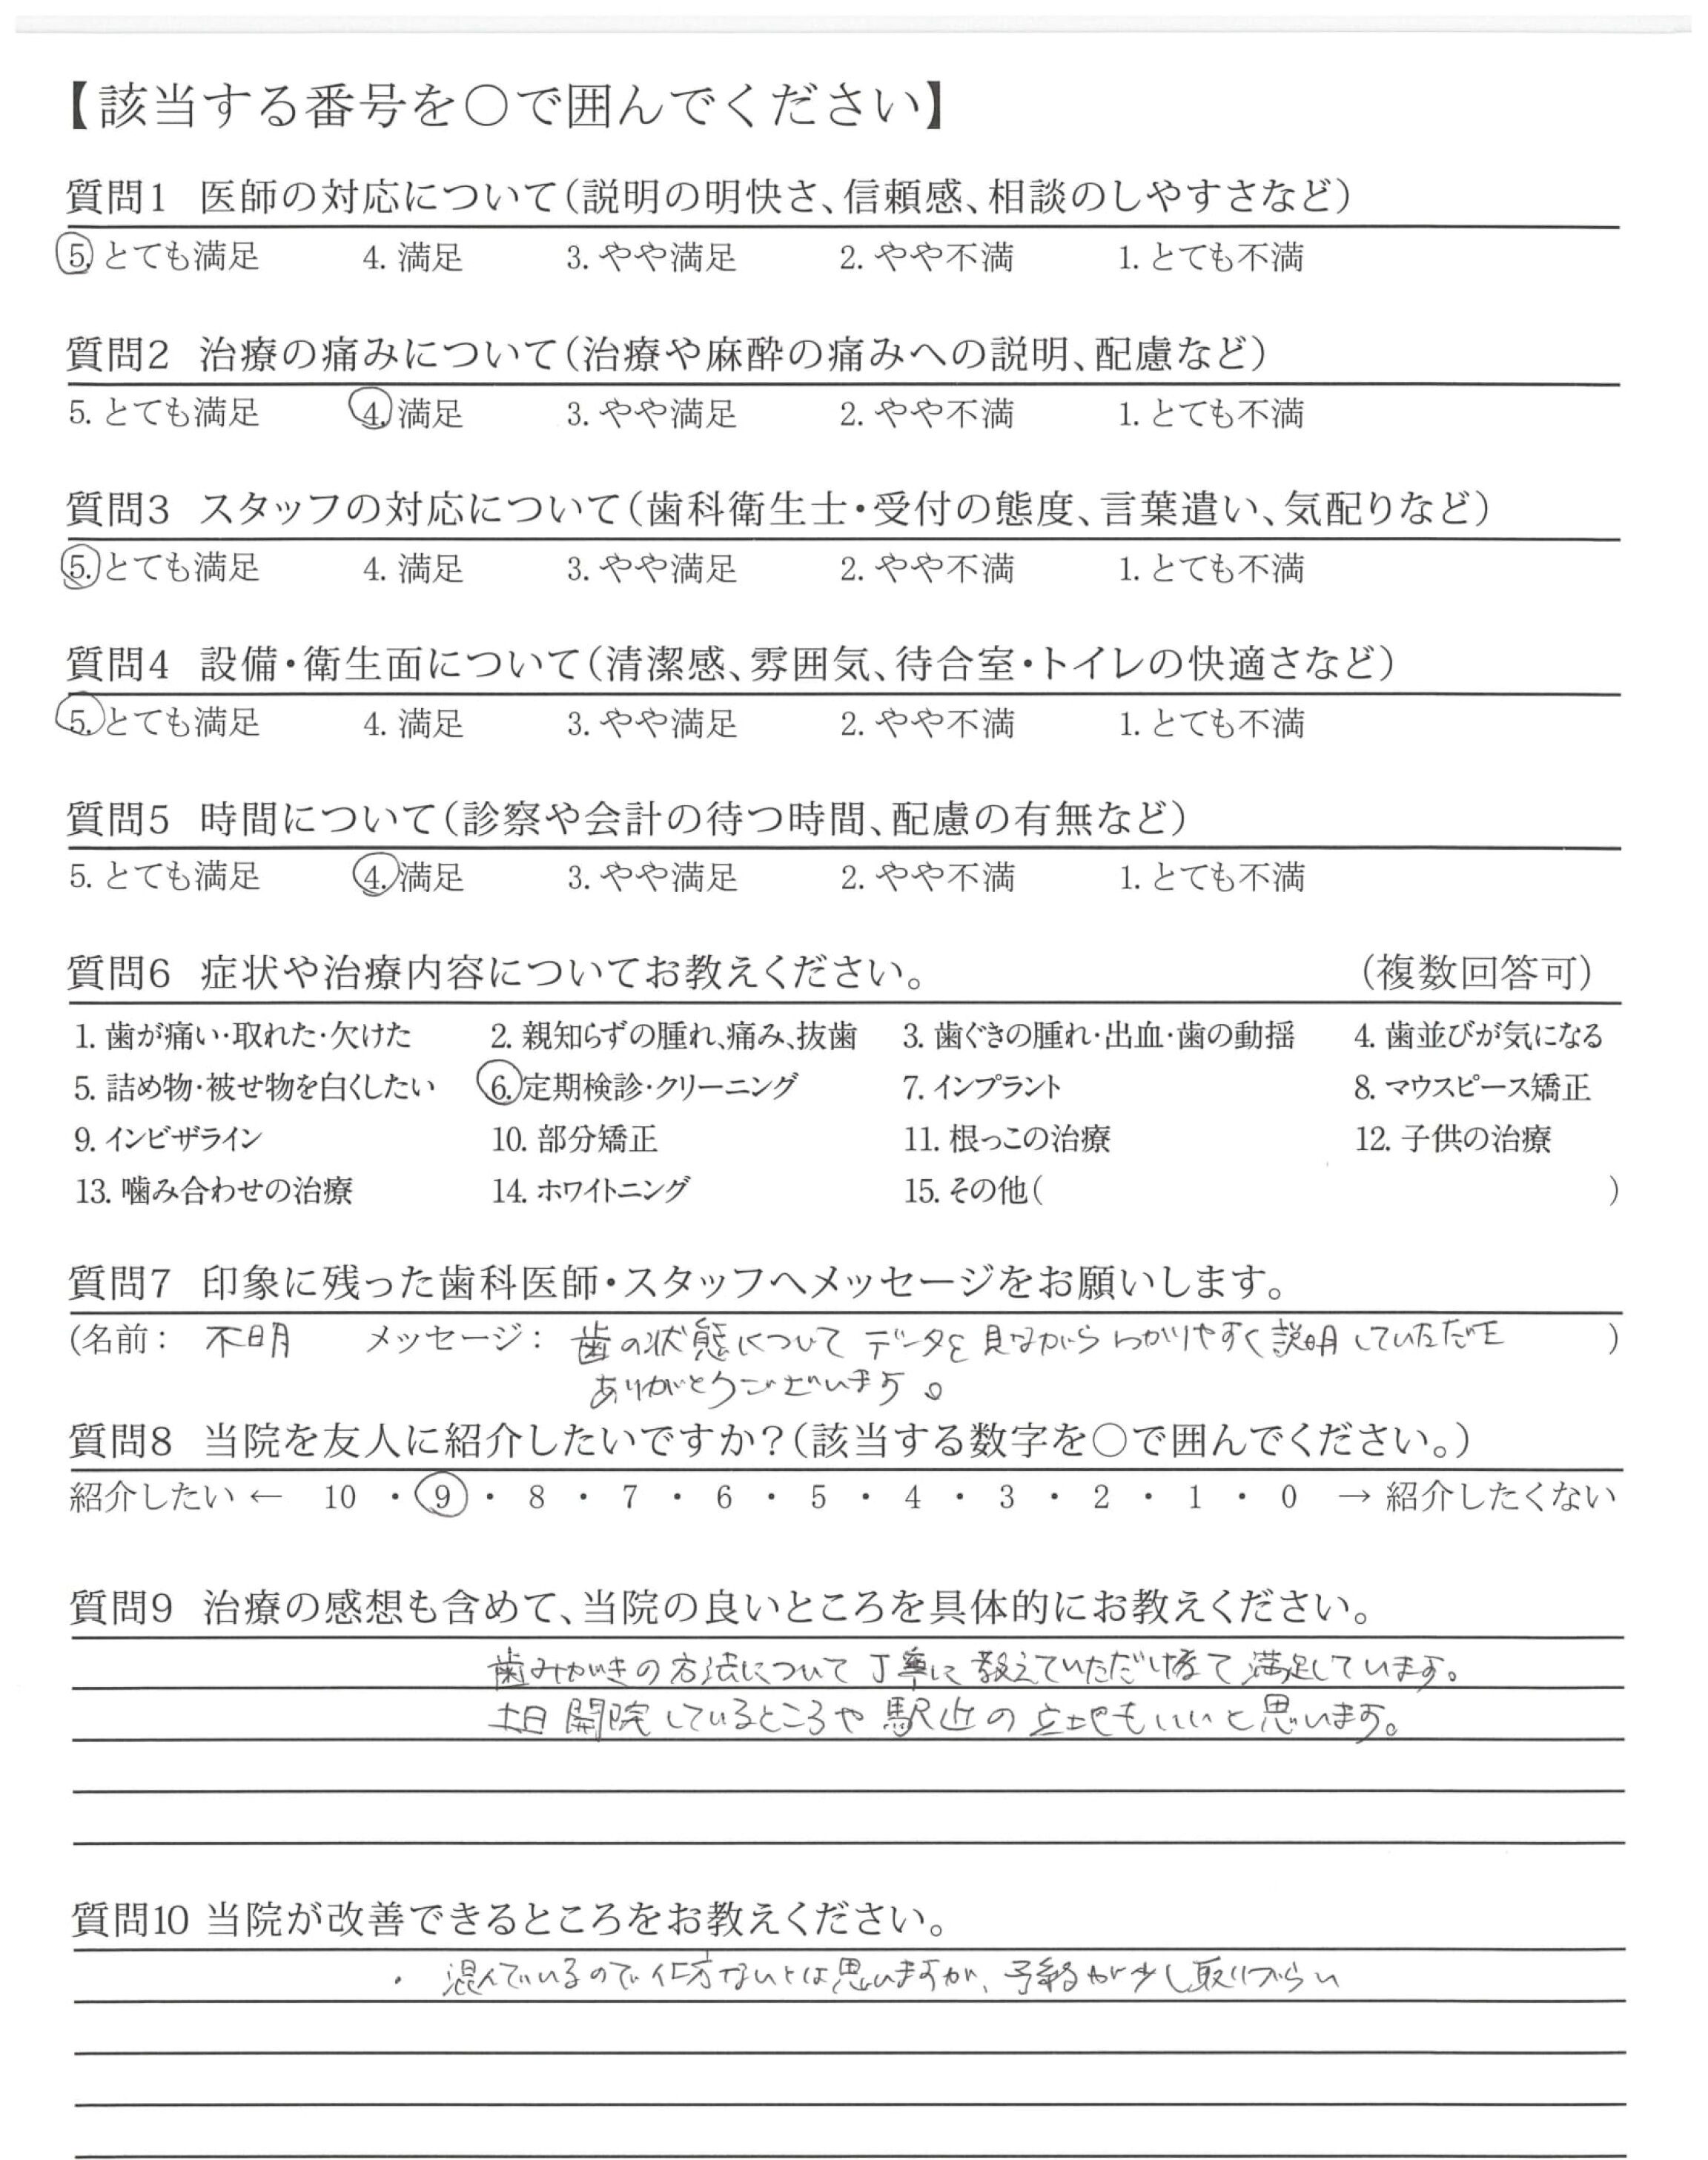 【該当する番号を○で囲んでください】
質問1 医師の対応について（説明の明快さ、信頼感、相談のしやすさなど）
5. とても満足 4. 満足 3. やや満足 2. やや不満 1. とても不満
質問2 治療の痛みについて（治療や麻酔の痛みへの説明、配慮など）
5. とても満足 4. 満足 3. やや満足 2. やや不満 1. とても不満
質問3 スタッフの対応について（歯科衛生士・受付の態度、言葉遣い、気配りなど）
5. とても満足 4. 満足 3. やや満足 2. やや不満 1. とても不満
質問4 設備・衛生面について（清潔感、雰囲気、待合室・トイレの快適さなど）
5. とても満足 4. 満足 3. やや満足 2. やや不満 1. とても不満
質問5 時間について（診察や会計の待つ時間、配慮の有無など）
5. とても満足 4. 満足 3. やや満足 2. やや不満 1. とても不満
質問6 症状や治療内容についてお教えください。 （複数回答可）
1. 歯が痛い・取れた・欠けた 2. 親知らずの腫れ、痛み、抜歯 3. 歯ぐきの腫れ・出血・歯の動揺 4. 歯並びが気になる
5. 詰め物・被せ物を白くしたい 6. 定期検診・クリーニング 7. インプラント 8. マウスピース矯正
9. インビザライン 10. 部分矯正 11. 根っこの治療 12. 子供の治療
13. 噛み合わせの治療 14. ホワイトニング 15. その他（ ）
質問7 印象に残った歯科医師・スタッフへメッセージをお願いします。
（名前： 不明 メッセージ： 歯の状態について データを見ながら わかりやすく説明していただき ）
ありがとうございます。
質問8 当院を友人に紹介したいですか？（該当する数字を○で囲んでください。）
紹介したい ← 10 ・ 9 ・ 8 ・ 7 ・ 6 ・ 5 ・ 4 ・ 3 ・ 2 ・ 1 ・ 0 → 紹介したくない
質問9 治療の感想も含めて、当院の良いところを具体的にお教えください。
歯みがきの方法について丁寧に教えていただけて満足しています。
土日開院しているところや駅近の立地もいいと思います。
質問10 当院が改善できるところをお教えください。
・ 混んでいるので仕方ないとは思いますが、予約が少し取りづらい